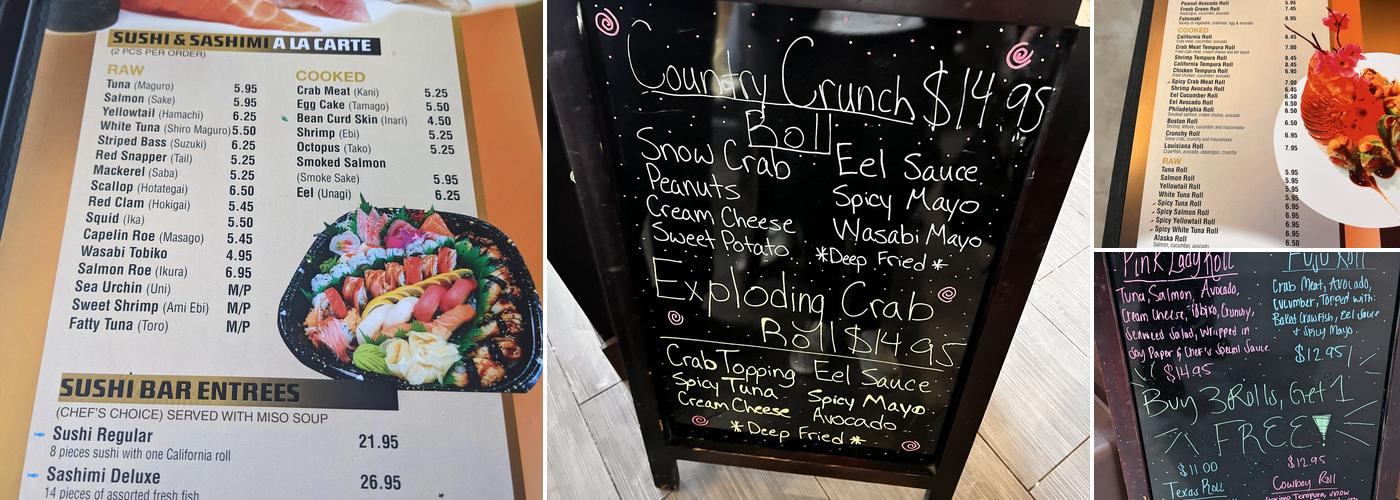 SUSHI & SASHIMI A LA CARTE
(2 PCS PER ORDER)
RAW
Tuna (Maguro) 5.95
Salmon (Sake) 5.95
Yellowtail (Hamachi) 6.25
White Tuna (Shiro Maguro) 5.50
Striped Bass (Suzuki) 6.25
Red Snapper (Tail) 5.25
Mackerel (Saba) 5.25
Scallop (Hotategai) 6.50
Red Clam (Hokigai) 5.45
Squid (Ika) 5.50
Capelin Roe (Masago) 5.45
Wasabi Tobiko 4.95
Salmon Roe (Ikura) 6.95
Sea Urchin (Uni) M/P
Sweet Shrimp (Ami Ebi) M/P
Fatty Tuna (Toro) M/P
COOKED
Crab Meat (Kani) 5.25
Egg Cake (Tamago) 5.50
Bean Curd Skin (Inari) 4.50
Shrimp (Ebi) 5.25
Octopus (Tako) 5.25
Smoked Salmon
(Smoke Sake) 5.95
Eel (Unagi) 6.25
SUSHI BAR ENTREES
(CHEF'S CHOICE) SERVED WITH MISO SOUP
Sushi Regular 21.95
8 pieces sushi with one California roll
Sashimi Deluxe 26.95
14 pieces of assorted fresh fish
Country Crunch $14.95
Roll
Snow Crab
Peanuts
Cream Cheese
Sweet Potato
Eel Sauce
Spicy Mayo
Wasabi Mayo
*Deep Fried*
Exploding Crab
Roll $14.95
Crab Topping
Spicy Tuna
Cream Cheese
Eel Sauce
Spicy Mayo
Avocado
*Deep Fried*
Peanut Avocado Roll 5.95
Fresh Green Roll 7.45
Asparagus, cucumber, avocado
Futomaki 8.95
Variety of vegetable, crabmeat, egg & avocado
COOKED
California Roll 6.45
Crab meat, cucumber, avocado
Crab Meat Tempura Roll 7.00
Fried crab meat, cream cheese and eel sauce
Shrimp Tempura Roll 8.45
California Tempura Roll 8.45
Chicken Tempura Roll 6.95
Fried chicken, cucumber, avocado
Spicy Crab Meat Roll 7.00
Shrimp Avocado Roll 6.45
Eel Cucumber Roll 6.50
Eel Avocado Roll 6.50
Philadelphia Roll 6.50
Smoked salmon, cream cheese, avocado
Boston Roll 6.50
Shrimp, lettuce, cucumber and mayonnaise
Crunchy Roll 6.95
Snow crab, crunchy and mayonnaise
Louisiana Roll 7.95
Crawfish, avocado, asparagus, crunchy
RAW
Tuna Roll 5.95
Salmon Roll 5.95
Yellowtail Roll 5.95
White Tuna Roll 5.95
Spicy Tuna Roll 6.95
Spicy Salmon Roll 6.95
Spicy Yellowtail Roll 6.95
Spicy White Tuna Roll 6.95
Alaska Roll 6.50
Salmon, cucumber, avocado
Pink Lady Roll
Tuna, Salmon, Avocado,
Cream Cheese, Tobiko, Crunchy,
Seaweed Salad, Wrapped in
Soy Paper & Chef's Special Sauce
$14.95
Fuji Roll
Crab Meat, Avocado,
Cucumber, Topped with:
Baked Crawfish, Eel Sauce
+ Spicy Mayo.
$12.95
Buy 3 Rolls, Get 1
FREE!
$11.00
Texas Roll
$12.95
Cowboy Roll
Shrimp Tempura, Snow